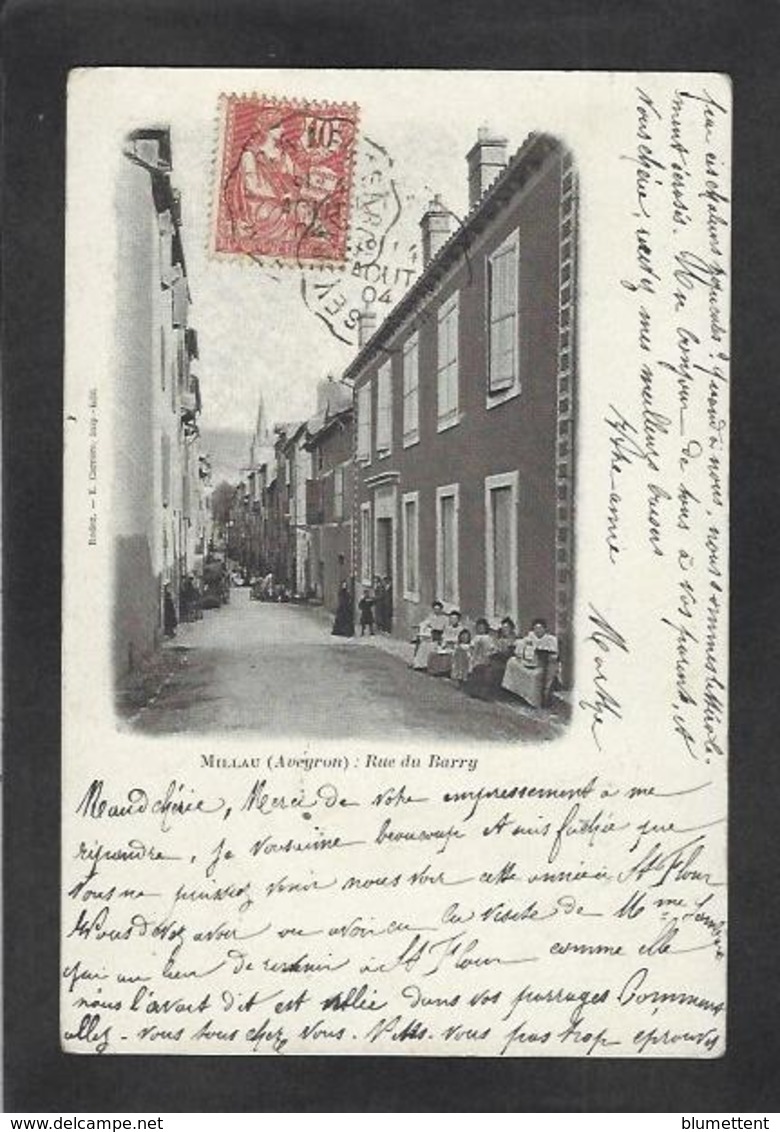 10
14
AOUT
04
Rodez. — E. Carrère, Imp.-Edit.
MILLAU (Aveyron) : Rue du Barry
Maud chérie, Merci de votre empressement à me
répondre, je vous aime beaucoup et suis fâchée que
vous ne puissiez venir nous voir cette année à St Flour
Vous devez avoir ou avoir eu la visite de Mme
qui au lieu de revenir à St Flour comme elle
nous l'avait dit est allée dans vos parages Comment
allez-vous tous chez vous. N'êtes-vous pas trop éprouvés
par ces chaleurs ? quand à nous, nous sommes littérale-
ment Un bonjour de tous à vos parents, et
vous chérie, mes meilleurs baisers
Marthe
blumettent